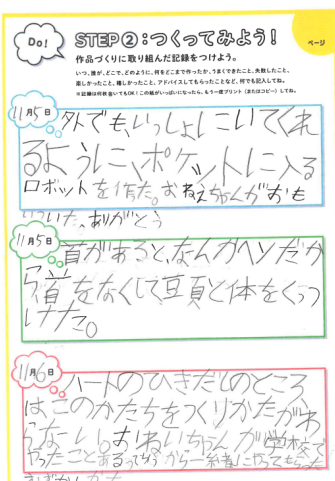 Do!
STEP②:つくってみよう!
ページ
作品づくりに取り組んだ記録をつけよう。
いつ、誰が、どこで、どのように、何をどこまで作ったか、うまくできたこと、失敗したこと、
楽しかったこと、嬉しかったこと、アドバイスしてもらったことなど、何でも記入してね。
※記録は何枚書いてもOK!この紙がいっぱいになったら、もう一度プリント(またはコピー)してね。
11月5日
外でも、いっしょにいてくれ
るように、ポケットに入る
ロボットを作た。おねえちゃんがおも
いついた。ありがとう
11月5日
首があると、なんかヘンだか
ら首をなくして頭と体をくっつ
けた。
11月6日
ハートのひきだしのところ
は、このかたちをつくりかたがわ
らない。おねいちゃんが学校で
やったことあるってゆうから一緒にやってもらった